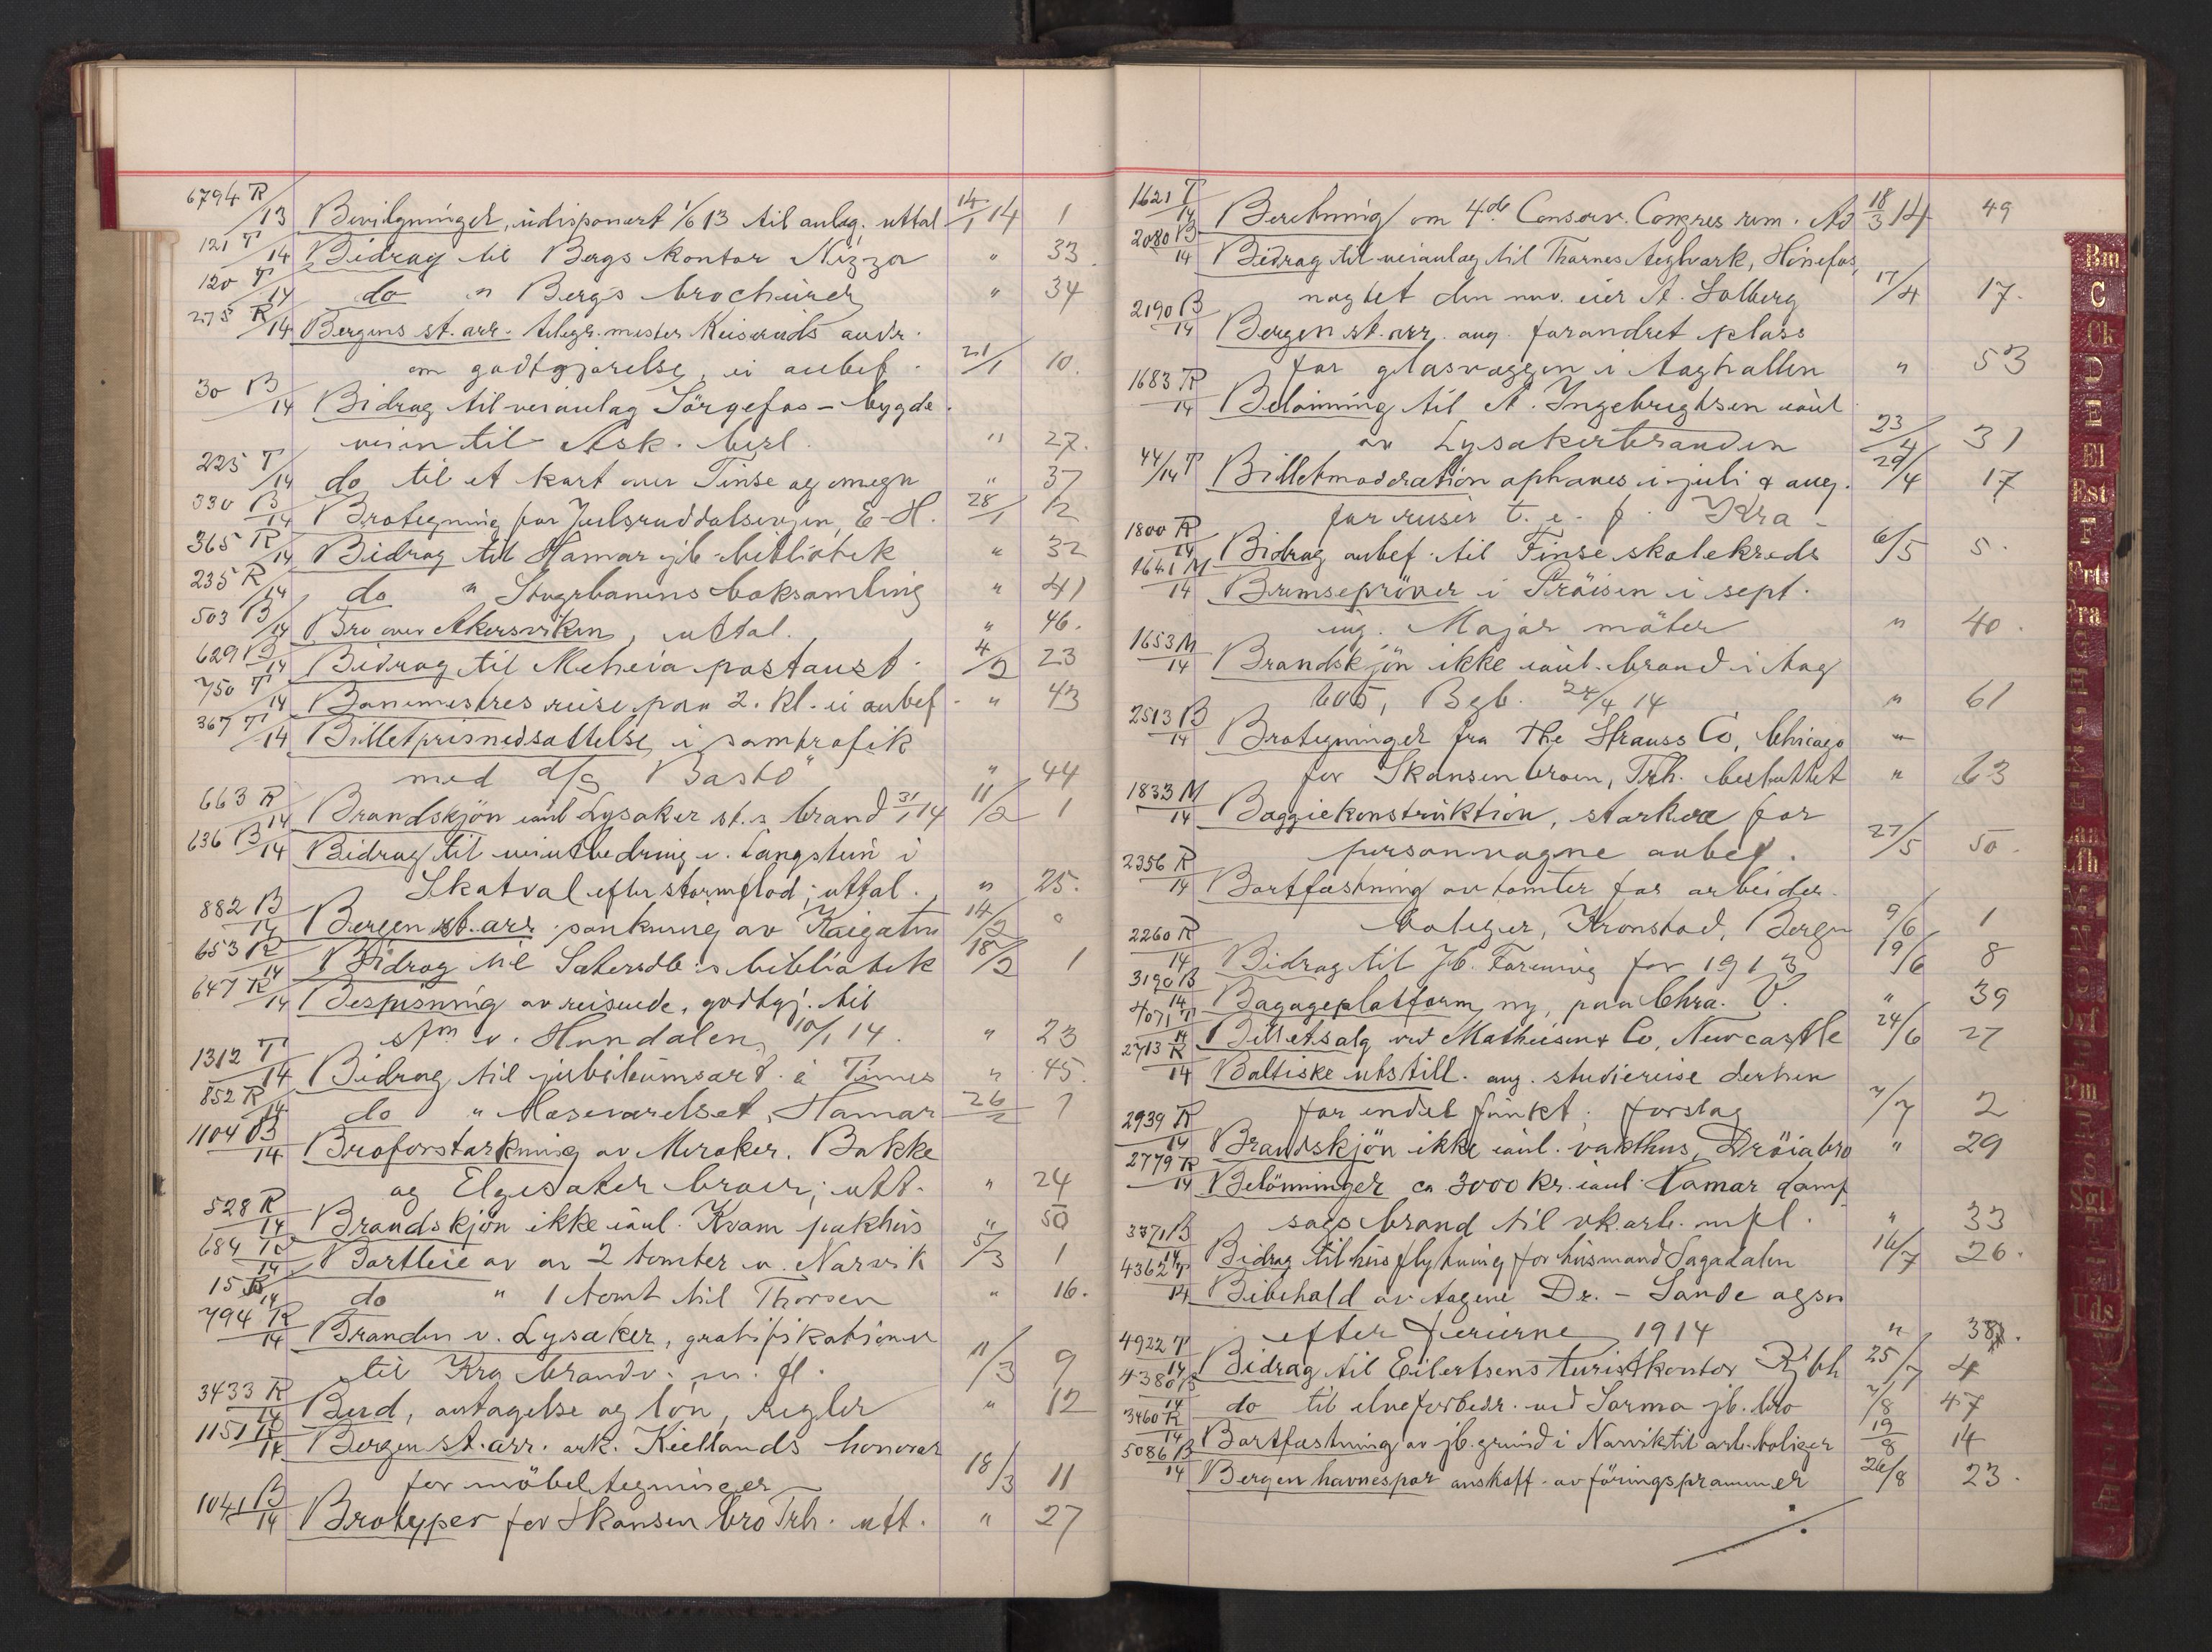 6794 R/13 Bevilgninger, udisponert 1/6 13 til anlæg. uttal 14/1 14 1
121 T/14 Bidrag til Bergs kontor Nizza " 33.
120 T/14 do " Bergs brochurer " 34
275 R/14 Bergens st. arr. telegr. mester andr.
om godtgjørelse, ei anbef. 21/1 10.
30 B/14 Bidrag til veianlag Sörgefos - bygde
veien til Ask. bevl. " 27.
225 T/14 do til et kart over Finse og omegn " 37
330 B/14 Brotegning for Julsruddalsveien, E-H. 28/1 12
365 R/14 Bidrag til Hamar jb. bibliotek " 32
235 R/14 do " boksamling " 41
503 B/14 Bro over Akersviken, uttal. " 46.
629 B/14 Bidrag til Meheia postaust. 4/2 23
750 T/14 Banemestres reise paa 2. kl. ei anbef. " 43
367 T/14 Billetprisnedsættelse i samtrafik
med d/s "Bastö" " 44
663 R/14 Brandskjön Lysaker st.s brand 31/1 14 11/2 1
636 B/14 Bidrag til veiutbedring v. Langstein i
Skatval efter stormflod; uttal. " 25.
882 B/14 Bergen st. arr. sænkning av Kaigaten 14/2 0
653 R/14 Bidrag til bibliotek 18/2 1
647 R/14 Bespisning av reisende, godtgj. til
stm v. Hundalen 10/1 14. " 23
1312 T/14 Bidrag til jubileumsart. i Times " 45.
852 R/14 do " Hamar 26/2 1
1104 B/14 Broforstærkning av Meraker, Bakke
og Elgesæter broer; utt. " 24
528 R/14 Brandskjön ikke Kvam pakhus " 50
684 R/14 Bortleie av av 2 tomter v. Narvik 5/3 1
15 R/14 do " 1 tomt til Thorsen " 16.
794 R/14 Branden v. Lysaker, gratifikationer
til Kra brandv. m. fl. 11/3 9
3433 R/14 Bud, antagelse og lön, regler " 12
1151 R/14 Bergen st. arr. ark. Kiellands honorar
for möbeltegninger 18/3 11
1041 B/14 Brotyper for Skansen bro Trh. utt. " 27
1621 T/14 Beretning om 4de Conserv. Congres rom. Ad 18/3 14 49
2080 B/14 Bidrag til veianlag til Tharnes teglverk, Hönefos,
nagtet den nuv. eier A. Solberg 17/4 17.
2190 B/14 Bergen st. arr. ang. forandret plass
for glasvæggen i toghallen " 53
1683 R/14 Belönning til A. Ingebrigtsen
av Lysakerbranden 23/4 31
44/14 T Billetmoderation ophæves i juli & aug. 29/4 17
for reiser t. e. f. Kra -
1800 R/14 Bidrag anbef. til Finse skolekreds 6/5 5.
1641 M/14 Bremseprøver i i sept.
ing. Major möter " 40.
1653 M/14 Brandskjön ikke brand i tog
605, Bgb. 24/4 14 " 61
2513 B/14 Brotegninger fra The Strauss Co, Chicago "
for Skansen broen, Trh. besluttet " 63
1833 M/14 Boggiekonstruktion, sterkere for
personvogne anbef. 27/5 50.
2356 R/14 Bortfæstning av tomter for arbeider
boliger, Kronstad, Bergen 9/6 1
2260 R/14 Bidrag til Jb. Forening for 1913 19/6 8
3190 B/14 Bagageplatform, ny, paa Chra. V. " 39
4071 T/14 Billetsalg ved Mathiesen & Co, Newcastle 24/6 27
2713 R/14 Baltiske utstill. ang. studiereise derhen
for endel funkt. forslag 7/7 2
2939 R/14 Brandskjön ikke vakthus, Dröiabro " 29
2779 R/14 Belönninger ca 3000 kr. Hamar damp
sagsbrand til vk. arb. m fl. " 33
3371 B/14 Bidrag til husflytning for husmand Sagadalen 16/7 26.
4362 T/14 Bibehold av togene Dr. - Sande ogsaa
efter ferierne 1914 " 38.
4922 T/14 Bidrag til Eilertsens turistkontor Kjbh 25/7 4
4380 B/14 do til elveforbedr. ved Sarma jb. bro 7/8 47
3460 R/14 Bortfæstning av jb. grund i Narvik til arb. boliger 19/8 14
5086 B/14 Bergen havnespor anskaff. av föringsprammer 26/8 23.
./.
Bm
C
Ck
D
E
El
Est
F
Frt
Fra
G
Lfh
M
N
O
Osf
Rm
S
Sgl
T
Uds